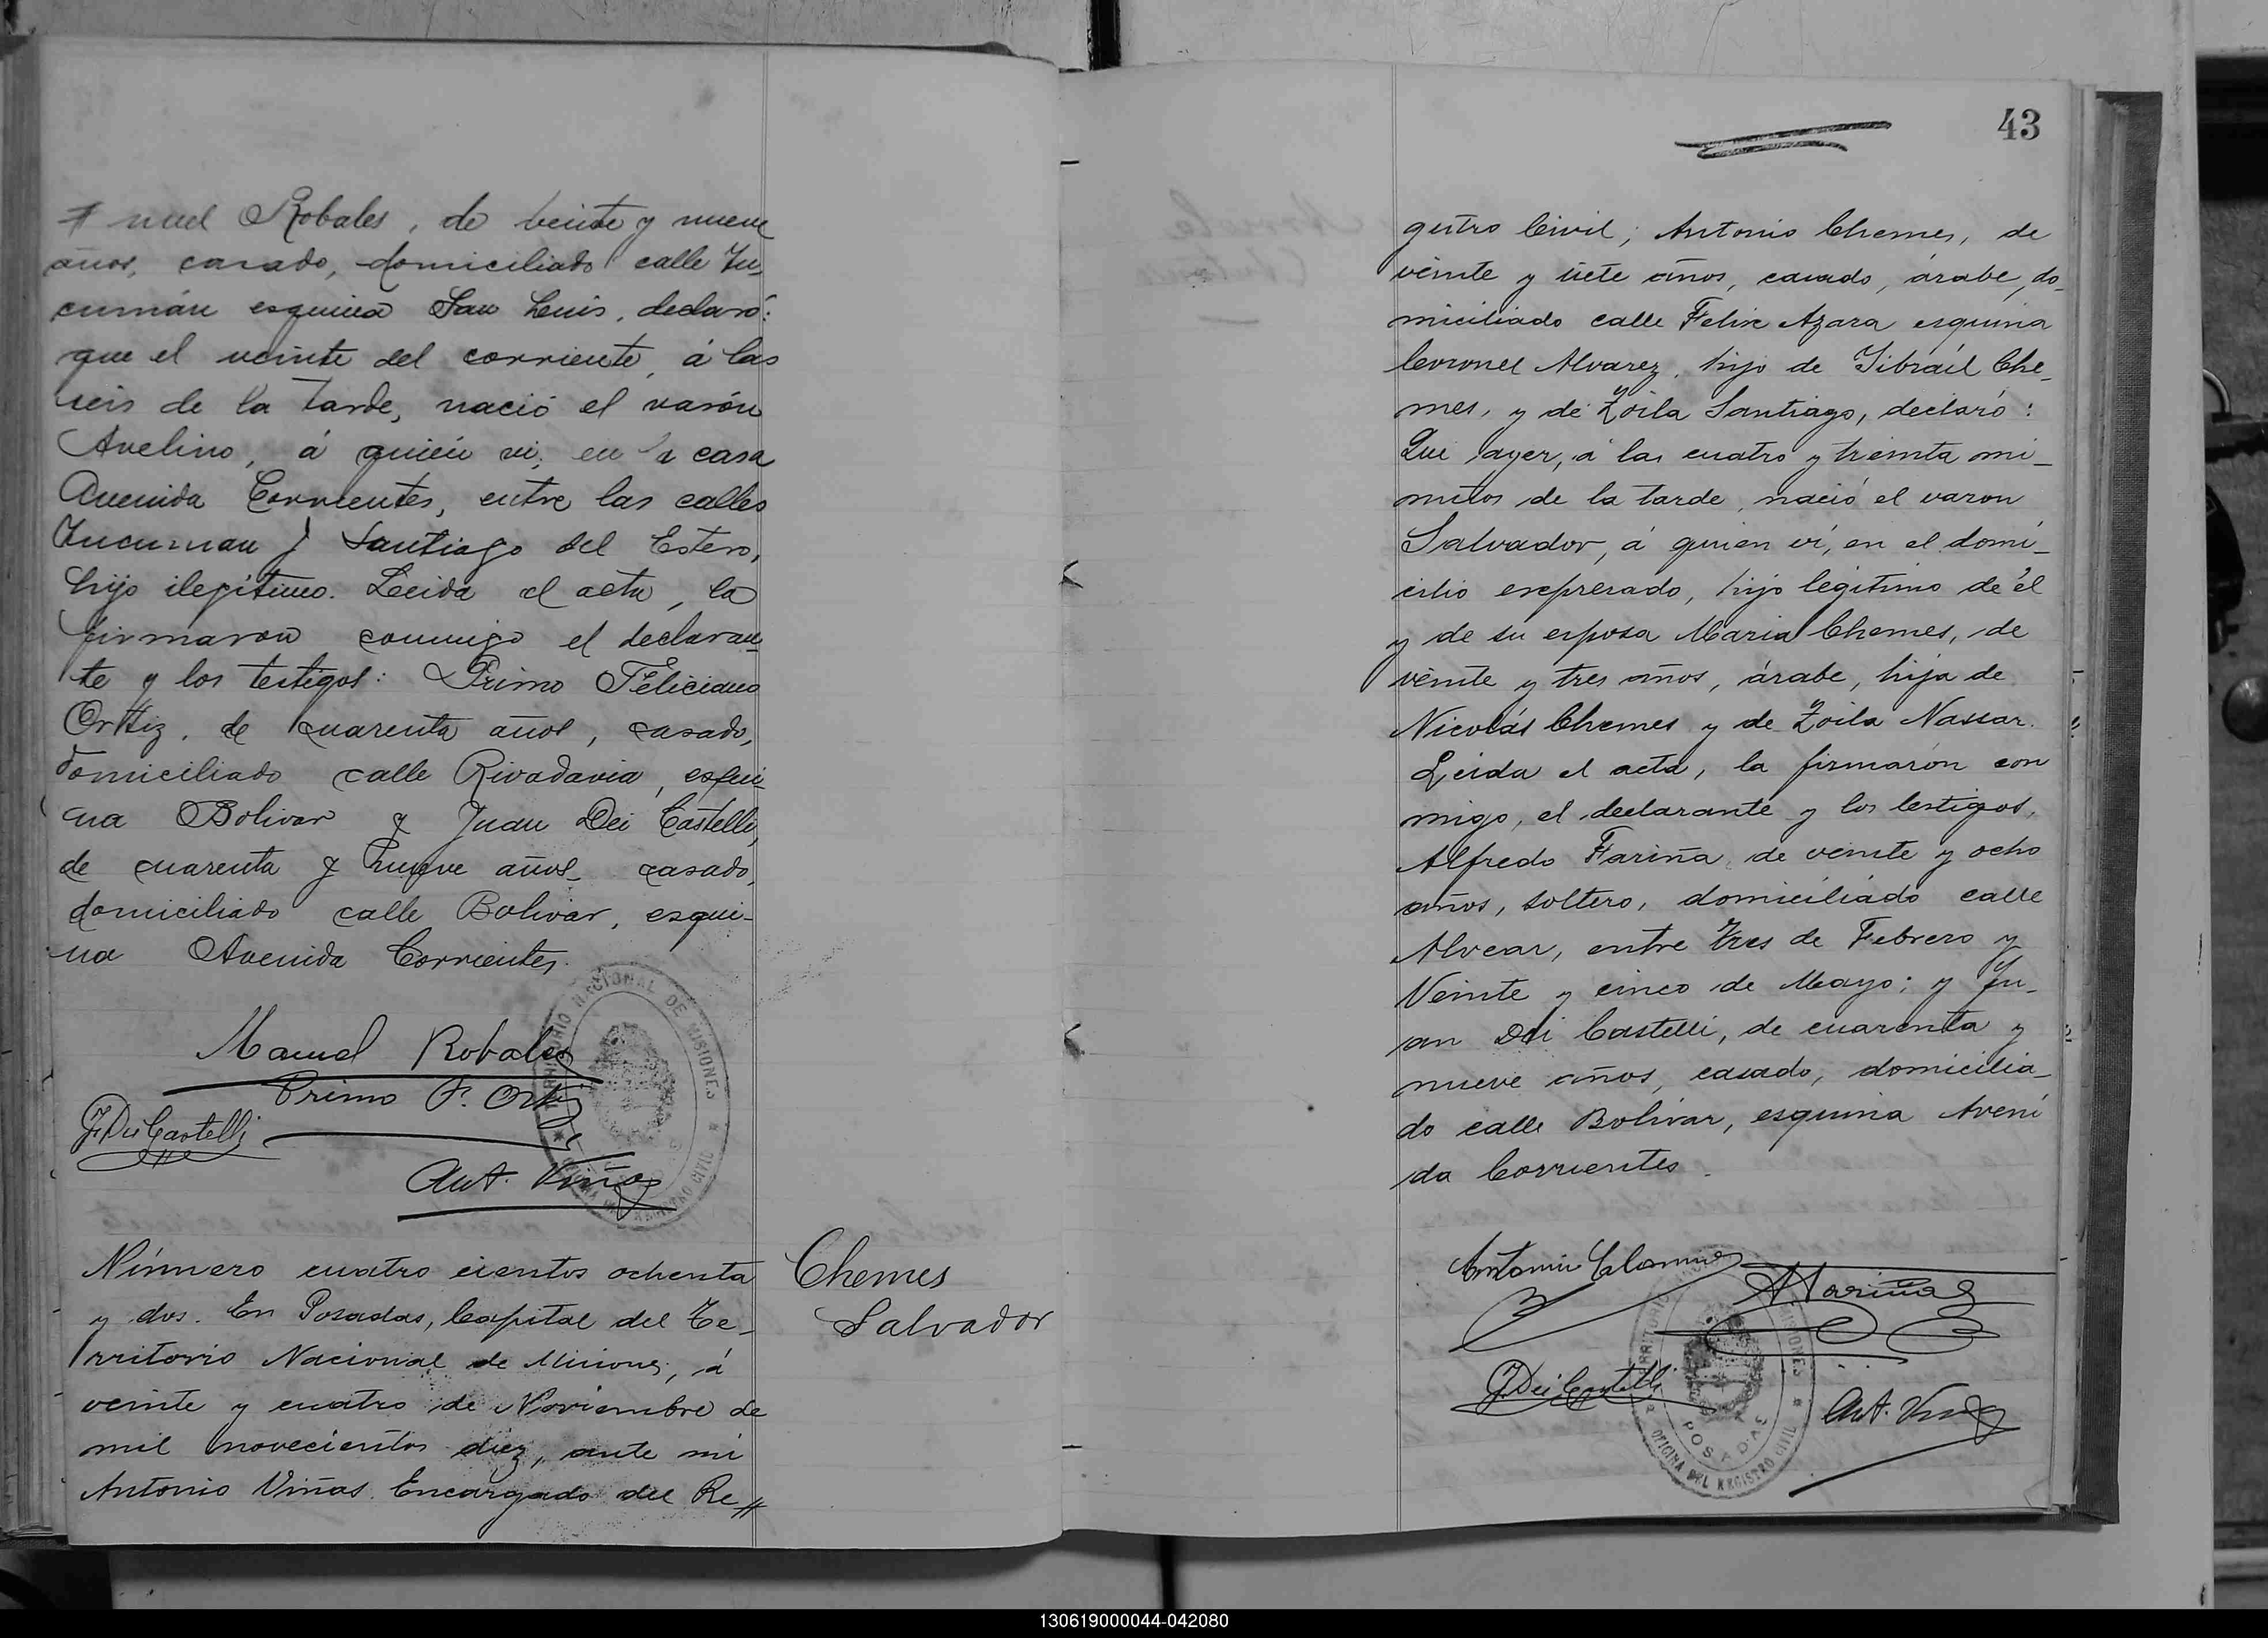 nuel Robales, de veinte y nueve
años, casado, domiciliado calle Tu-
cumán esquina San Luis, declaró:
que el veinte del corriente, á las
seis de la tarde, nació el varón
Avelino, á quién vi, en la casa
Avenida Corrientes, entre las calles
Tucuman y Santiago del Estero,
hijo ilegítimo. Leida el acta, la
firmaron conmigo el declaran-
te y los testigos: Primo Feliciano
Ortiz, de cuarenta años, casado,
domiciliado calle Rivadavia, esqui-
na Bolivar y Juan Dei Castelli,
de cuarenta y nueve años casado,
domiciliado calle Bolivar, esqui-
na Avenida Corrientes.
Manuel Robales
Primo F. Ortiz
J. Dei Castelli
Ant. Viñas
TERRITORIO NACIONAL DE MISIONES
OFICINA DEL REGISTRO CIVIL
Número cuatro cientos ochenta
y dos. En Posadas, Capital del Te-
rritorio Nacional de Misiones, á
veinte y cuatro de Noviembre de
mil novecientos diez, ante mi
Antonio Viñas Encargado del Re
Chemes
Salvador
43
gistro Civil, Antonio Chemes, de
veinte y siete años, casado, árabe, do-
miciliado calle Felix Azara esquina
Coronel Alvarez, hijo de Jibraíl Che-
mes, y de Zoila Santiago, declaró:
Que ayer, á las cuatro y treinta mi-
nutos de la tarde, nació el varon
Salvador, á quien ví, en el domi-
cilio expresado, hijo legítimo de él
y de su esposa Maria Chemes, de
veinte y tres años, árabe, hija de
Nicolás Chemes y de Zoila Nassar.
Leida el acta, la firmarón con
migo, el declarante y los testigos,
Alfredo Fariña, de veinte y ocho
años, soltero, domiciliado calle
Alvear, entre Tres de Febrero y
Veinte y cinco de Mayo; y Ju-
an Dei Castelli, de cuarenta y
nueve años, casado, domicilia-
do calle Bolívar, esquina Aveni
da Corrientes.
Antonio Chemes
A Fariña
J. Dei Castelli
Ant. Viñas
TERRITORIO MISIONES
POSADAS
OFICINA DEL REGISTRO CIVIL
130619000044-042080